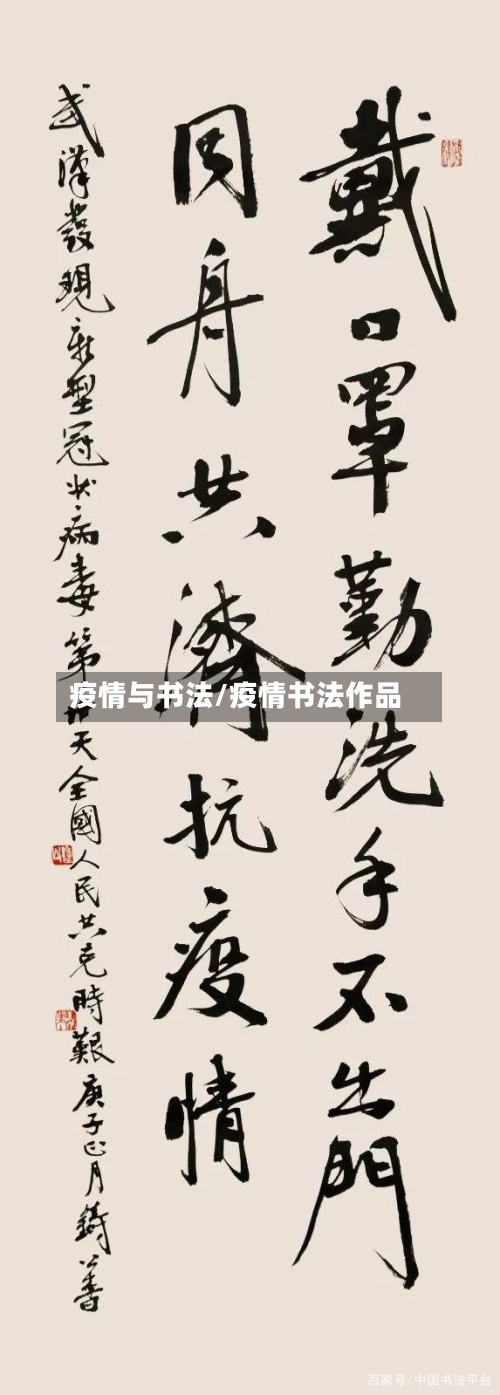 戴口罩勤洗手不出門
同舟共濟抗疫情
武漢發現新型冠狀病毒第廿天全國人民共克時艱庚子正月
疫情与书法/疫情书法作品
百家号/中国书法平台